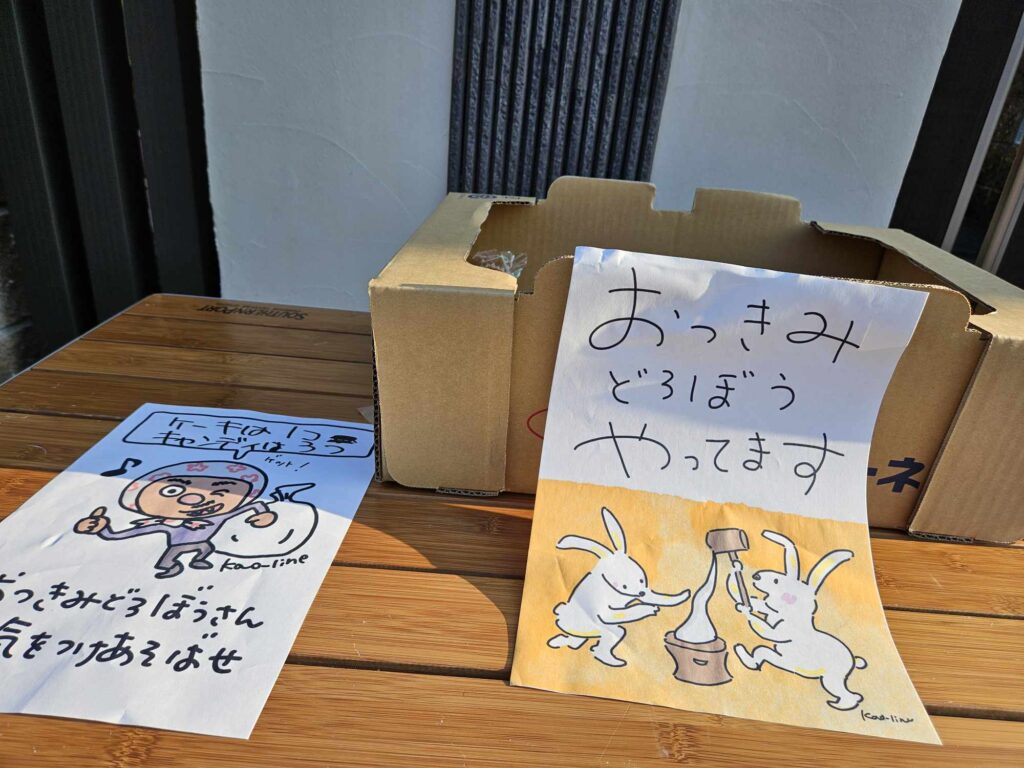 SOUTHERNPORT
ケーキは1つ
キャンディは3つ
ゲット!
Kao-line
おっきみどろぼうさん
気をつけあそばせ
おっきみ
どろぼう
やってます
Kao-line
ーネ